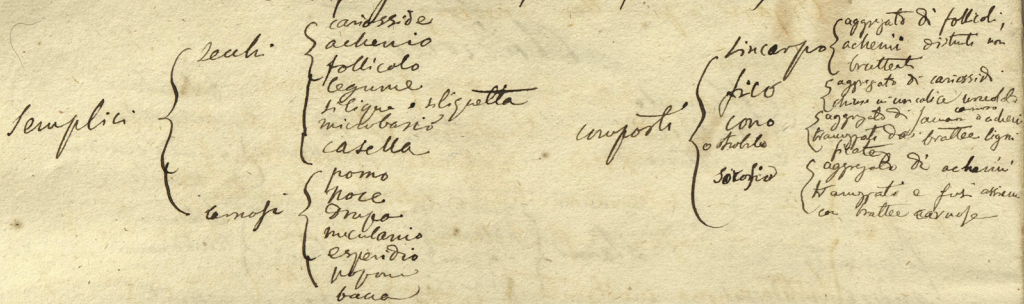 Semplici
secchi
cariosside
achenio
follicolo
legume
siliqua o siliquetta
microbasio
casella
carnosi
pomo
noce
drupa
nuculanio
esperidio
pepone
bacca
composti
sincarpo
aggregato di follicoli,
achenii distinti non
fico
aggregato di cariossidi
chiuse in un calice
cono
o strobilo
aggregato di o achenii
tramezzati da brattee ligni
ficate
sorosio
aggregato di achenii
tramezzati e fusi assieme
con brattee carnose